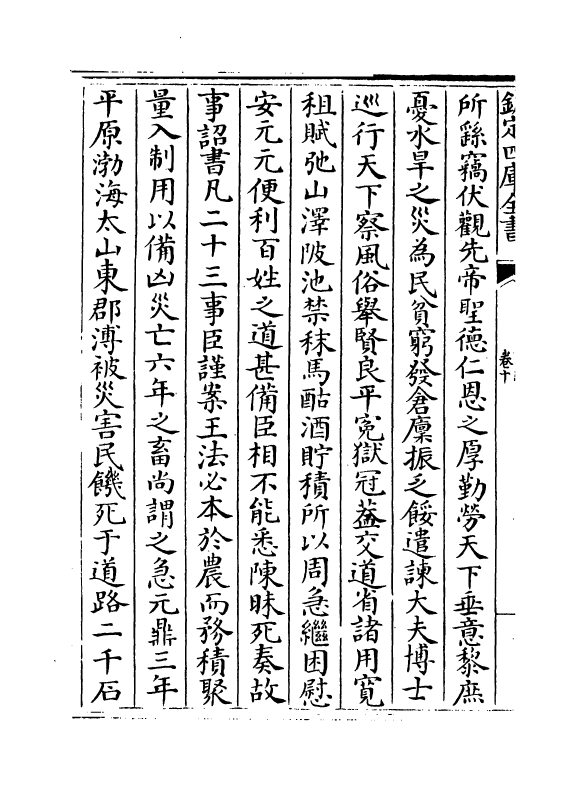 欽定四庫全書
卷十
所繇竊伏觀先帝聖德仁恩之厚勤勞天下垂意黎庶
憂水旱之災為民貧窮發倉廩振乏餧遣諫大夫博士
巡行天下察風俗舉賢良平寃獄冠葢交道省諸用寛
租賦弛山澤陂池禁秣馬酤酒貯積所以周急繼困慰
安元元便利百姓之道甚備臣相不能悉陳昧死奏故
事詔書凡二十三事臣謹案王法必本於農而務積聚
量入制用以備凶災亡六年之畜尚謂之急元鼎三年
平原渤海太山東郡溥被災害民餓死于道路二千石